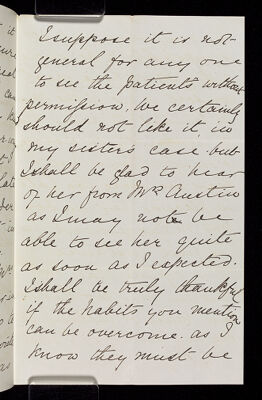 I suppose it is not
general for any one
to see the patients without
permission, we certainly
should not like it, in
my sisters case but
I shall be glad to hear
of her from Mrs Austin
as I may not be
able to see her quite
as soon as I expected.
I shall be truly thankful
if the habits you mention
can be overcome. as I
know they must be